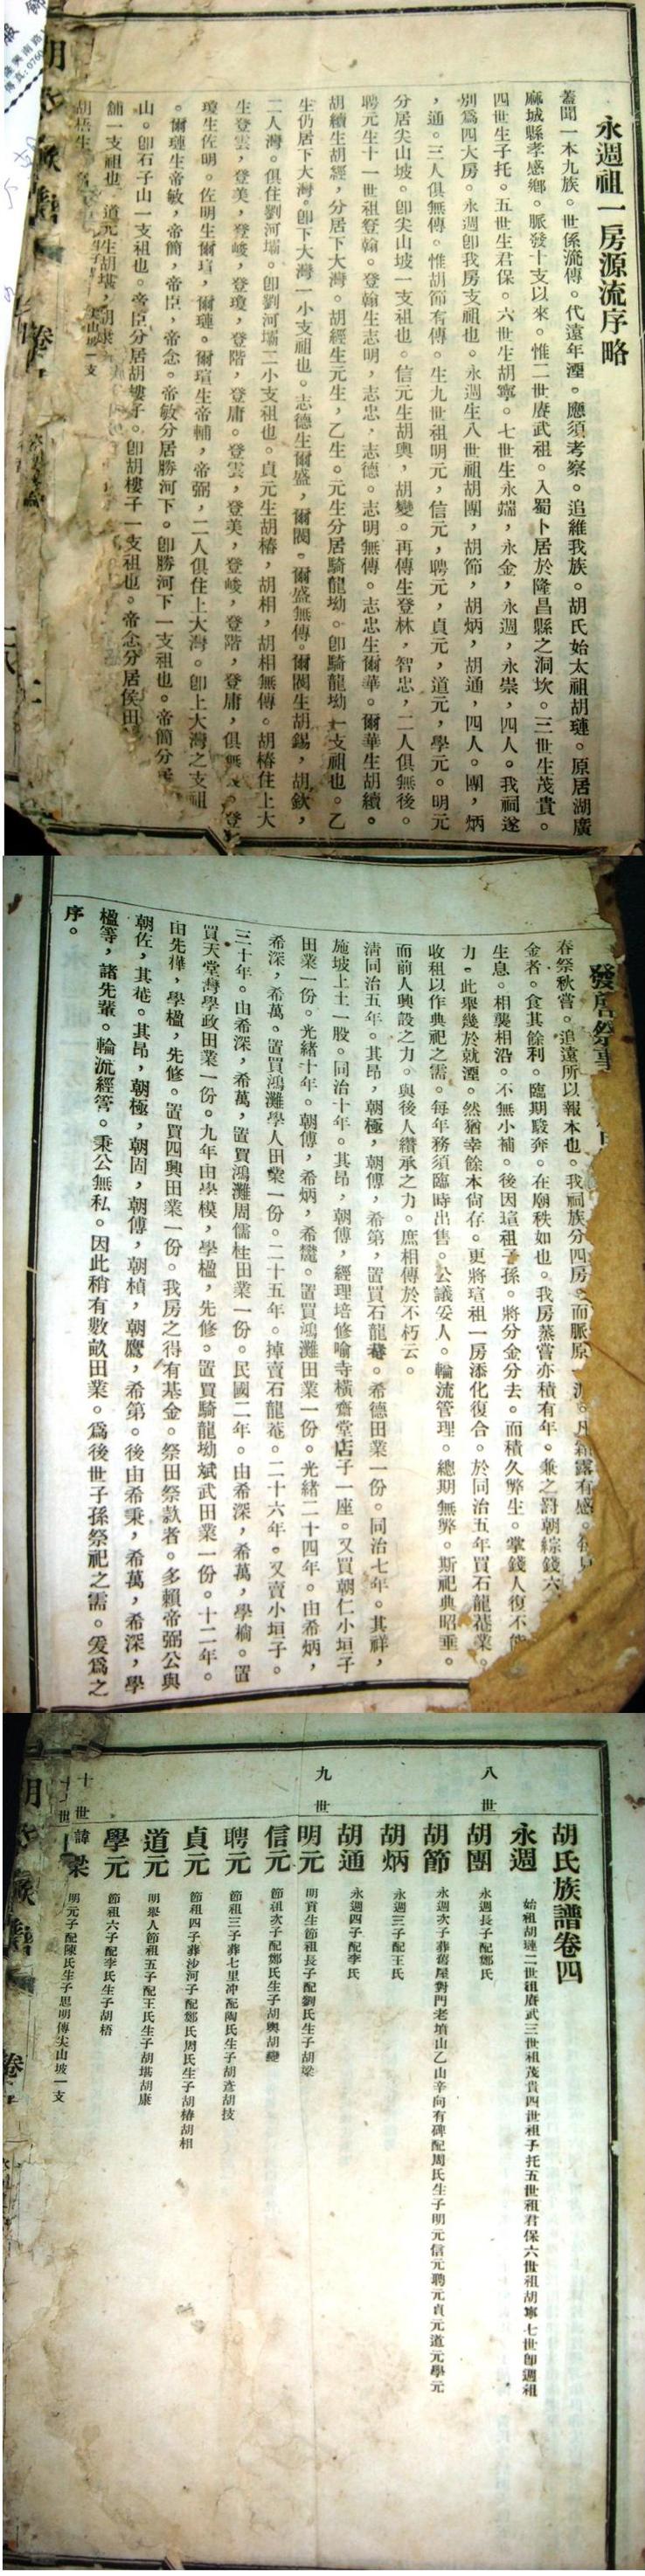 永週祖一房源流序略
蓋聞一本九族。世係流傳。代遠年湮。應須考察。追維我族。胡氏始太祖胡璉。原居湖廣
麻城縣孝感鄉。脈發十支以來。惟二世賡武祖。入蜀卜居於隆昌縣之洞坎。三世生茂貴。
四世生子托。五世生君保。六世生胡寧。七世生永端，永金，永週，永崇，四人。我祠遂
別爲四大房。永週卽我房支祖也。永週生八世祖胡團，胡節，胡炳，胡通，四人。團，炳
，通。三人俱無傳。惟胡節有傳。生九世祖明元，信元，聘元，貞元，道元，學元。明元
分居尖山坡。卽尖山坡一支祖也。信元生胡輿，胡變。再傳生登林，智忠，二人俱無後。
聘元生十一世祖登翰。登翰生志明，志忠，志德。志明無傳。志忠生爾華。爾華生胡續。
胡續生胡經，分居下大灣。胡經生元生，乙生。元生分居騎龍坳。卽騎龍坳一支祖也。乙
生仍居下大灣。卽下大灣一小支祖也。志德生爾盛，爾閣。爾盛無傳。爾閣生胡錫，胡欽，
二人灣。俱住劉河壩。卽劉河壩二小支祖也。貞元生胡椿，胡相，胡相無傳。胡椿住上大
生登雲，登美，登峻，登瓊，登階，登庸。登雲，登美，登峻，登階，登庸，俱無 。登
瓊生佐明。佐明生爾瑄，爾璉。爾瑄生帝輔，帝弼，二人俱住上大灣。卽上大灣之支祖
。爾璉生帝敏，帝簡，帝臣，帝念。帝敏分居勝河下。卽勝河下一支祖也。帝簡分
山。卽石子山一支祖也。帝臣分居胡樓子。卽胡樓子一支祖也。帝念分居侯田
舖一支祖也 道元生胡堪，胡康
胡梧生 山坡一支
發 祭事
春祭秋嘗。追遠所以報本也。我祠族分四房。而脈原一 。凡霜露有感。
金者。食其餘利。臨期駿奔。在廟秩如也。我房蒸嘗亦積有年。兼之 朝綜錢六
生息。相襲相沿。不無小補。後因瑄祖子孫。將分金分去。而積久弊生。掌錢人復不
力。此舉幾於就湮。然猶幸餘本尙存。更將瑄祖一房添化復合。於同治五年買石龍菴業。
收租以作典祀之需。每年務須臨時出售。公議妥人。輪流管理。總期無弊。斯祀典昭垂。
而前人興設之力。與後人纘承之力。庶相傳於不朽云。
淸同治五年。其昂，朝極，朝傅，希第，置買石龍菴。希德田業一份。同治七年。其祥，
施坡上土一股。同治十年。其昂，朝傅，經理培修喻寺橫齋堂店子一座。又買朝仁小垣子
田業一份。光緒十年。朝傅，希炳，希 。置買鴻灘田業一份。光緒二十四年。由希炳，
希深，希萬。置買鴻灘學人田業一份。二十五年。掉賣石龍菴。二十六年。又賣小垣子。
三十年。由希深，希萬，置買鴻灘周儒柱田業一份。民國二年。由希深，希萬，學 。置
買天堂灣學政田業一份。九年由學模，學楹，先修。置買騎龍坳斌武田業一份。十二年。
由先樺，學楹，先修。置買四興田業一份。我房之得有基金。祭田祭款者。多賴帝弼公與
朝佐，其菴。其昂，朝極，朝固，朝傅，朝楨，朝鷹，希第。後由希秉，希萬，希深，學
楹等，諸先輩。輪流經管。秉公無私。因此稍有數畝田業。爲後世子孫祭祀之需。爰爲之
序。
胡氏族譜卷四
永週 始祖胡璉二世祖賡武三世祖茂貴四世祖子托五世祖君保六世祖胡寧七世卽週祖
八世 胡團 永週長子配鄭氏
胡節 永週次子葬舊屋對門老墳山乙山辛向有碑配周氏生子明元信元聘元貞元道元學元
胡炳 永週三子配王氏
胡通 永週四子配李氏
九世 明元 明貢生節祖長子配劉氏生子胡梁
信元 節祖次子配鄭氏生子胡輿胡變
聘元 節祖三子葬七里冲配陶氏生子胡彥胡技
貞元 節祖四子葬沙河子配鄭氏周氏生子胡椿胡相
道元 明舉人節祖五子配王氏生子胡堪胡康
學元 節祖六子配李氏生子胡梧
十世諱梁 明元子配陳氏生子思明傳尖山坡一支
十一世